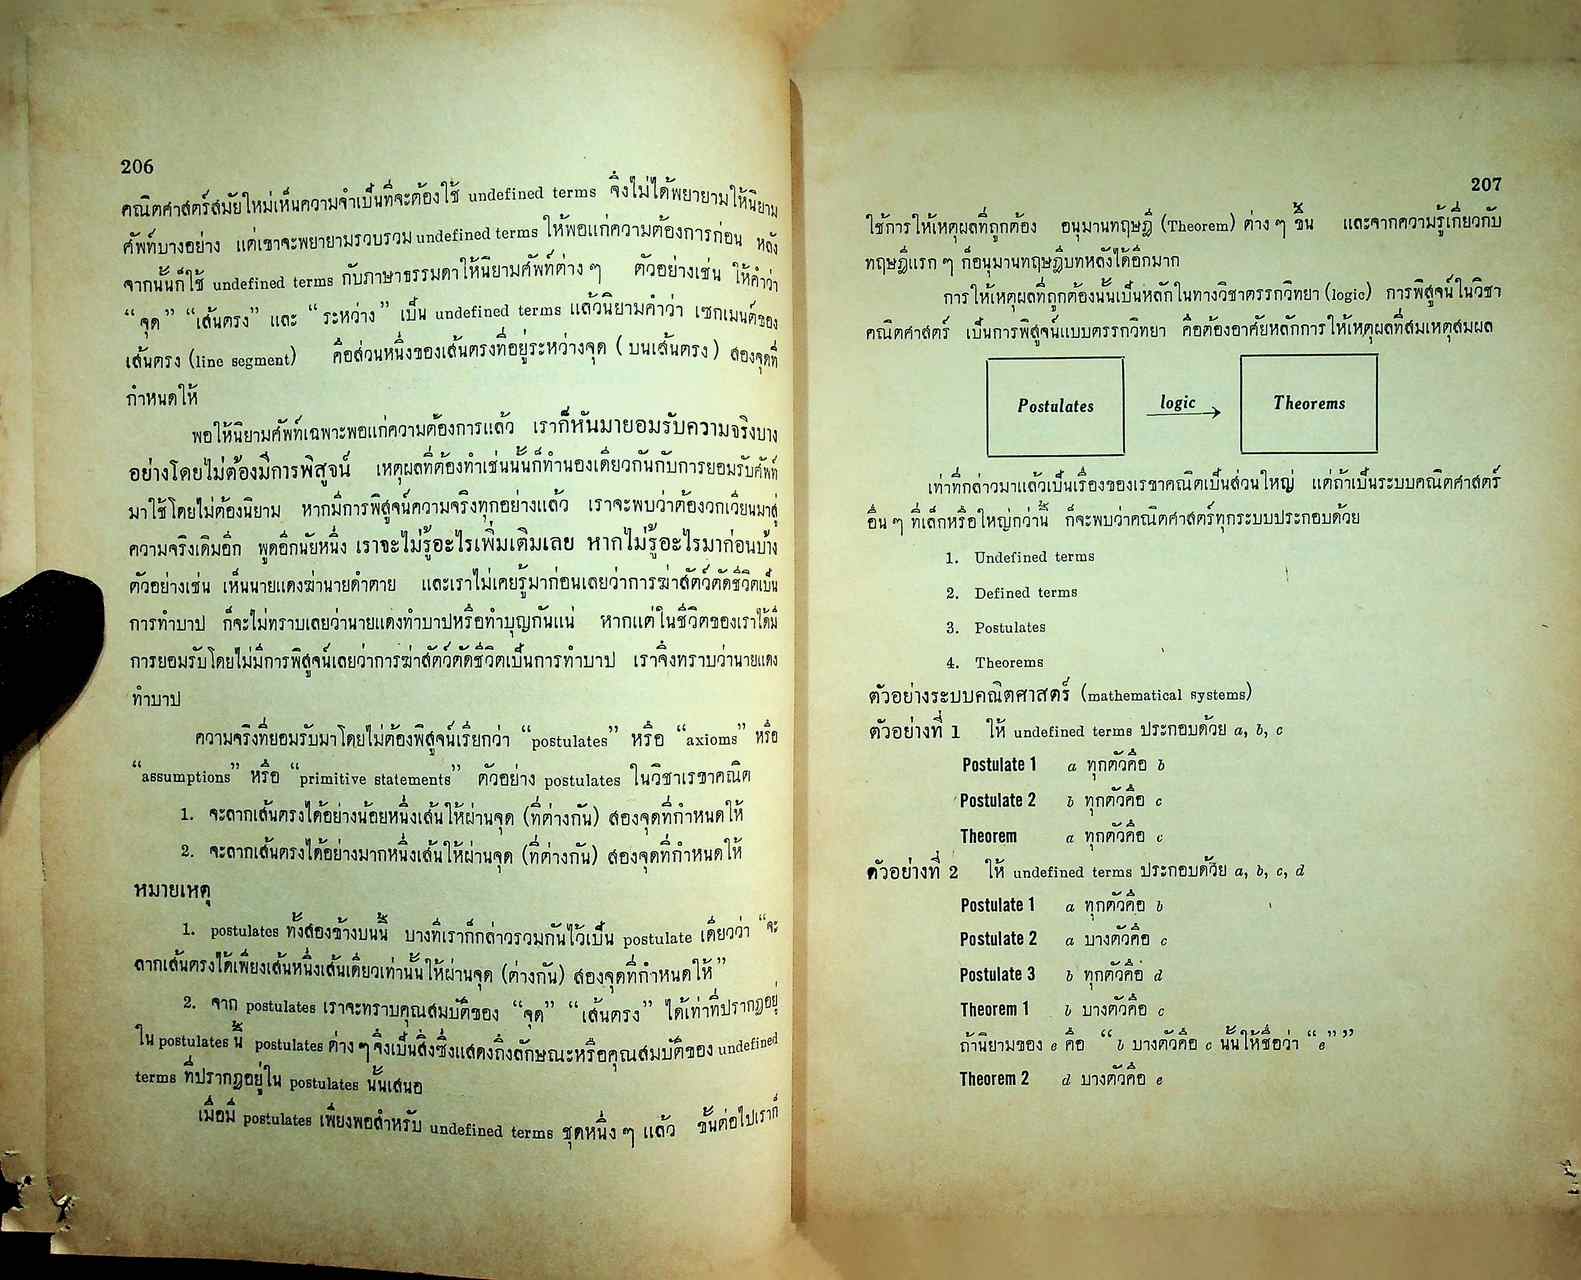 206
คณิตศาสตร์สมัยใหม่เห็นความจำเป็นที่จะต้องใช้ undefined terms จึงไม่ได้พยายามให้นิยาม
ศัพท์บางอย่าง แต่เขาจะพยายามรวบรวม undefined terms ให้พอแก่ความต้องการก่อน หลัง
จากนั้นก็ใช้ undefined terms กับภาษาธรรมดาให้นิยามศัพท์ต่าง ๆ ตัวอย่างเช่น ให้คำว่า
“จุด” “เส้นตรง” และ “ระหว่าง” เป็น undefined terms แล้วนิยามคำว่า เซกเมนต์ของ
เส้นตรง (line segment) คือส่วนหนึ่งของเส้นตรงที่อยู่ระหว่างจุด (บนเส้นตรง) สองจุดที่
กำหนดให้
พอให้นิยามศัพท์เฉพาะพอแก่ความต้องการแล้ว เราก็หันมายอมรับความจริงบาง
อย่างโดยไม่ต้องมีการพิสูจน์ เหตุผลที่ต้องทำเช่นนั้นก็ทำนองเดียวกันกับการยอมรับศัพท์
มาใช้โดยไม่ต้องนิยาม หากมีการพิสูจน์ความจริงทุกอย่างแล้ว เราจะพบว่าต้องวกเวียนมาสู่
ความจริงเดิมอีก พูดอีกนัยหนึ่ง เราจะไม่รู้อะไรเพิ่มเติมเลย หากไม่รู้อะไรมาก่อนบ้าง
ตัวอย่างเช่น เห็นนายแดงฆ่านายดำตาย และเราไม่เคยรู้มาก่อนเลยว่าการฆ่าสัตว์ตัดชีวิตเป็น
การทำบาป ก็จะไม่ทราบเลยว่านายแดงทำบาปหรือทำบุญกันแน่ หากแต่ในชีวิตของเราได้มี
การยอมรับโดยไม่มีการพิสูจน์เลยว่าการฆ่าสัตว์ตัดชีวิตเป็นการทำบาป เราจึงทราบว่านายแดง
ทำบาป
ความจริงที่ยอมรับมาโดยไม่ต้องพิสูจน์เรียกว่า “postulates” หรือ “axioms” หรือ
“assumptions” หรือ “primitive statements” ตัวอย่าง postulates ในวิชาเรขาคณิต
1. จะลากเส้นตรงได้อย่างน้อยหนึ่งเส้นให้ผ่านจุด (ที่ต่างกัน) สองจุดที่กำหนดให้
2. จะลากเส้นตรงได้อย่างมากหนึ่งเส้นให้ผ่านจุด (ที่ต่างกัน) สองจุดที่กำหนดให้
หมายเหตุ
1. postulates ทั้งสองข้างบนนี้ บางทีเราก็กล่าวรวมกันไว้เป็น postulate เดียวว่า “จะ
ลากเส้นตรงได้เพียงเส้นหนึ่งเส้นเดียวเท่านั้นให้ผ่านจุด (ต่างกัน) สองจุดที่กำหนดให้”
2. จาก postulates เราจะทราบคุณสมบัติของ “จุด” “เส้นตรง” ได้เท่าที่ปรากฏอยู่
ใน postulates นี้ postulates ต่าง ๆ จึงเป็นสิ่งซึ่งแสดงถึงลักษณะหรือคุณสมบัติของ undefined
terms ที่ปรากฏอยู่ใน postulates นั้นเสมอ
เมื่อมี postulates เพียงพอสำหรับ undefined terms ชุดหนึ่ง ๆ แล้ว ขั้นต่อไปเราก็
207
ใช้การให้เหตุผลที่ถูกต้อง อนุมานทฤษฎี (Theorem) ต่าง ๆ ขึ้น และจากความรู้เกี่ยวกับ
ทฤษฎีแรก ๆ ก็อนุมานทฤษฎีบทหลังได้อีกมาก
การให้เหตุผลที่ถูกต้องนั้นเป็นหลักในทางวิชาตรรกวิทยา (logic) การพิสูจน์ในวิชา
คณิตศาสตร์ เป็นการพิสูจน์แบบตรรกวิทยา คือต้องอาศัยหลักการให้เหตุผลที่สมเหตุสมผล
Postulates logic Theorems
เท่าที่กล่าวมาแล้วเป็นเรื่องของเรขาคณิตเป็นส่วนใหญ่ แต่ถ้าเป็นระบบคณิตศาสตร์
อื่น ๆ ที่เล็กหรือใหญ่กว่านี้ ก็จะพบว่าคณิตศาสตร์ทุกระบบประกอบด้วย
1. Undefined terms
2. Defined terms
3. Postulates
4. Theorems
ตัวอย่างระบบคณิตศาสตร์ (mathematical systems)
ตัวอย่างที่ 1 ให้ undefined terms ประกอบด้วย a, b, c
Postulate 1 a ทุกตัวคือ b
Postulate 2 b ทุกตัวคือ c
Theorem a ทุกตัวคือ c
ตัวอย่างที่ 2 ให้ undefined terms ประกอบด้วย a, b, c, d
Postulate 1 a ทุกตัวคือ b
Postulate 2 a บางตัวคือ c
Postulate 3 b ทุกตัวคือ d
Theorem 1 b บางตัวคือ c
ถ้านิยามของ e คือ “b บางตัวคือ c นั้นให้ชื่อว่า “e””
Theorem 2 d บางตัวคือ e